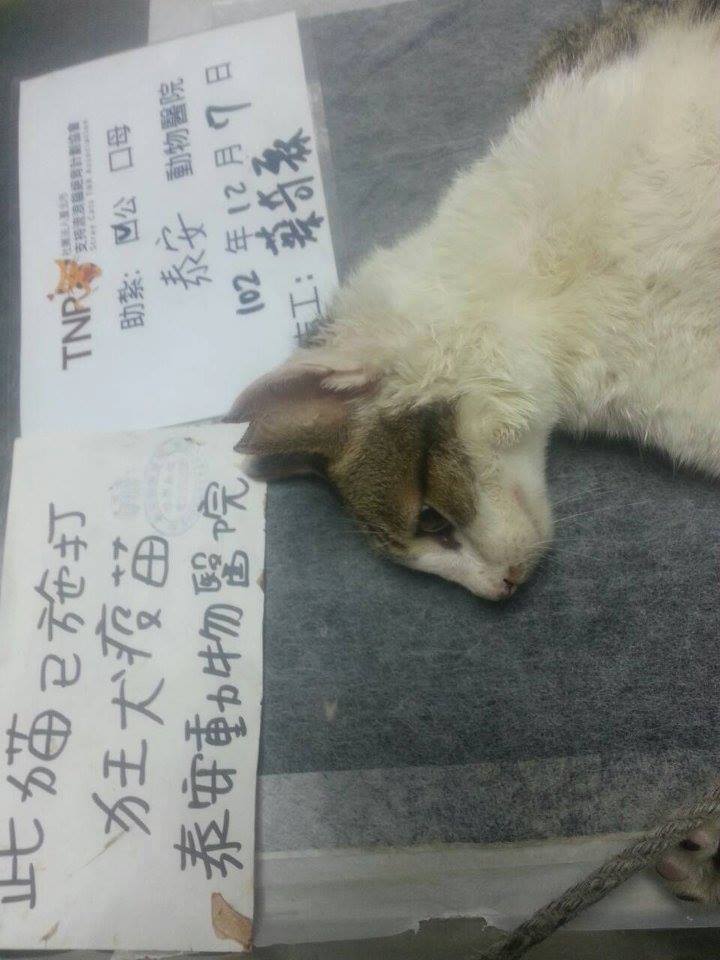 TNR
社團法人臺北市
支持流浪貓絕育計劃協會
Stray Cats TNR Association
助紮: ☑公 ☐母
泰安 動物醫院
102年12月7日
志工:
此貓已施打
狂犬疫苗
泰安動物醫院